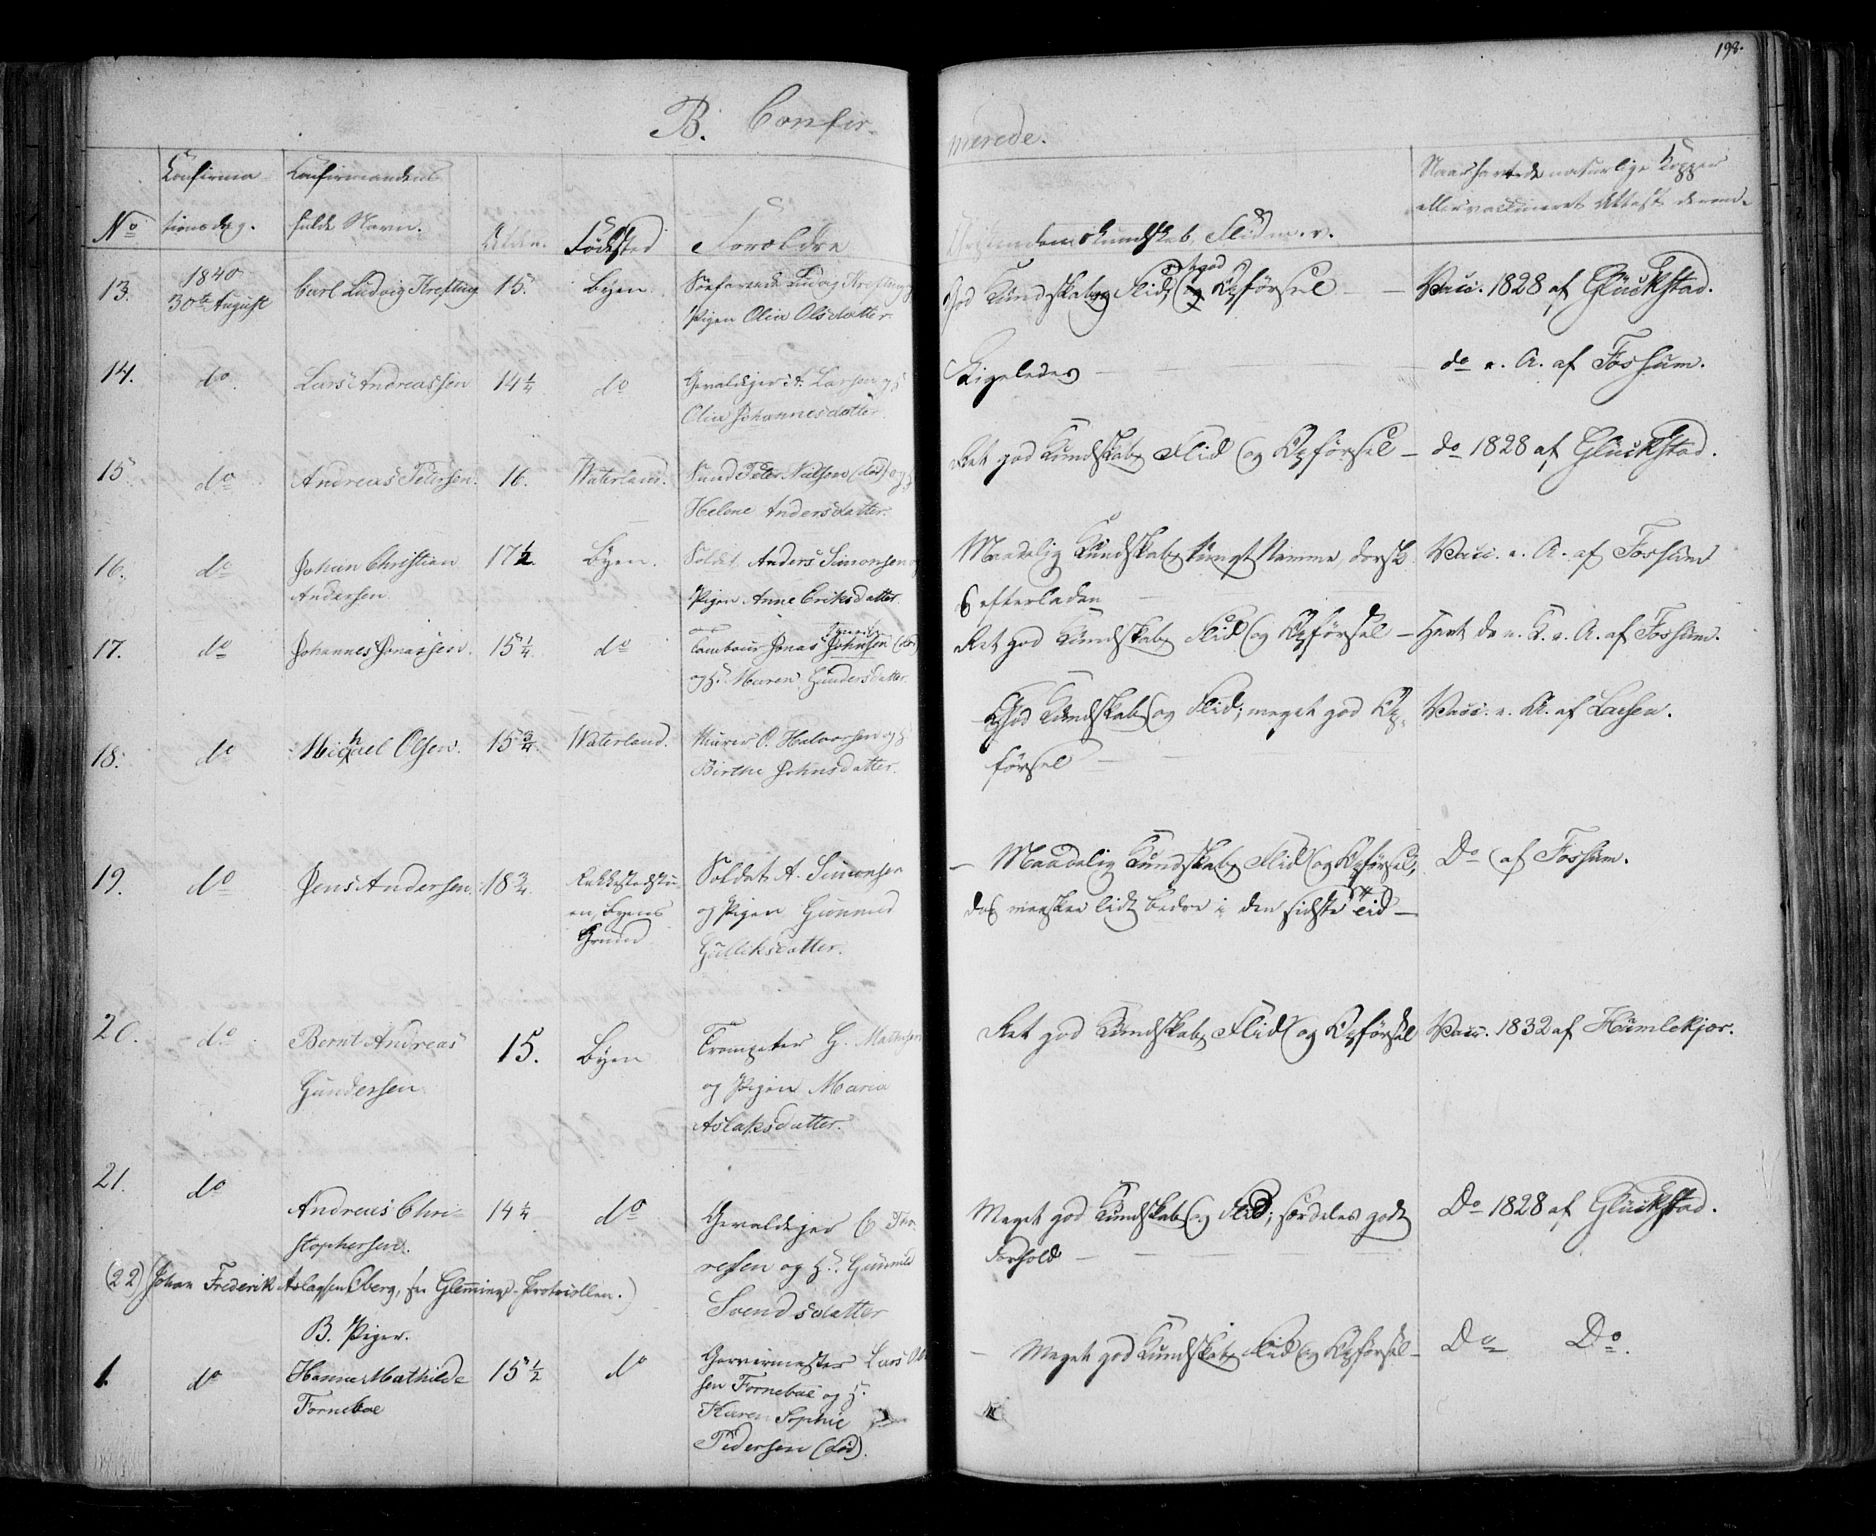 198.
B. Confir-
merede.
No
Confirma-
tionsdag.
Confirmandens
fulde Navn.
Alder.
Fødested
Forældre
Christendomskundskab, Flid m. v.
Naar havt de naturlige Kopper
eller vaccineret Attest derom.
13.
1840
30te August
Carl Ludvig Krefting
15.
Byen.
Søefarende Ludvig Krefting
Pigen Olia Olsdatter.
God Kundskab Flid og Opførsel
Vacc. 1828 af Glückstad.
14.
do
Lars Andreassen
14 1/4
do
A. Larsen og H.
Olia Johannesdatter.
Ligeledes
do u. A. af Fossum.
15.
do
Andreas Petersen.
16.
Waterland.
Peter Nielsen (død) og H.
Helene Andersdatter.
Ret god Kundskab, Flid og Opførsel
do 1828 af Glückstad.
16.
do
Johan Christian
Andersen
17 1/2.
Byen.
Soldat Anders Simonsen og
Pigen Anne Eriksdatter.
Maadelig Kundskab, tungt Nemme, dorsk
& efterladen
Vacc. u. A. af Fossum
17.
do
Johannes Jonassen.
15 1/4
do
Tambour Jonas Johnsen (død)
og H. Maren Gundersdatter.
Ret god Kundskab, Flid og Opførsel
Havt do u. A. af Fossum.
18.
do
Michael Olsen.
15 3/4.
Waterland.
Murer O. Halvorsen og H.
Birthe Johnsdatter.
God Kundskab og Flid; meget god Op-
førsel
Vacc. u. A. af Larsen.
19.
do
Jens Andersen.
18 3/4.
Byens
Grund
Soldat A. Simonsen
og Pigen Gunnild
Gulliksdatter.
Maadelig Kundskab, Flid og Opførsel,
dog maaskee lidt bedre i den sidste Tid
Do af Fossum.
20.
do
Bernt Andreas
Gundersen
15.
Byen
Trompeter G. Mathisen
og Pigen Maria
Aslaksdatter.
Ret god Kundskab, Flid og Opførsel
Vacc. 1832 af Humlekjær.
21.
do
Andreas Chri-
stophersen.
14 1/4
do
C. Tor-
resen og H. Gunnild
Svendsdatter
Meget god Kundskab og Flid; særdeles godt
Forhold
Do 1828 af Glückstad.
(22) Johan Frederik Aslagsen Oberg, see Glemminge-Protocollen.)
B. Piger.
1.
do
Hanne Mathilde
Forneboe
15 1/2
do
Garvermester Lars Ol-
sen Forneboe og H.
Karen Sophie
Pedersen (død).
Meget god Kundskab, Flid og Opførsel
Do Do.